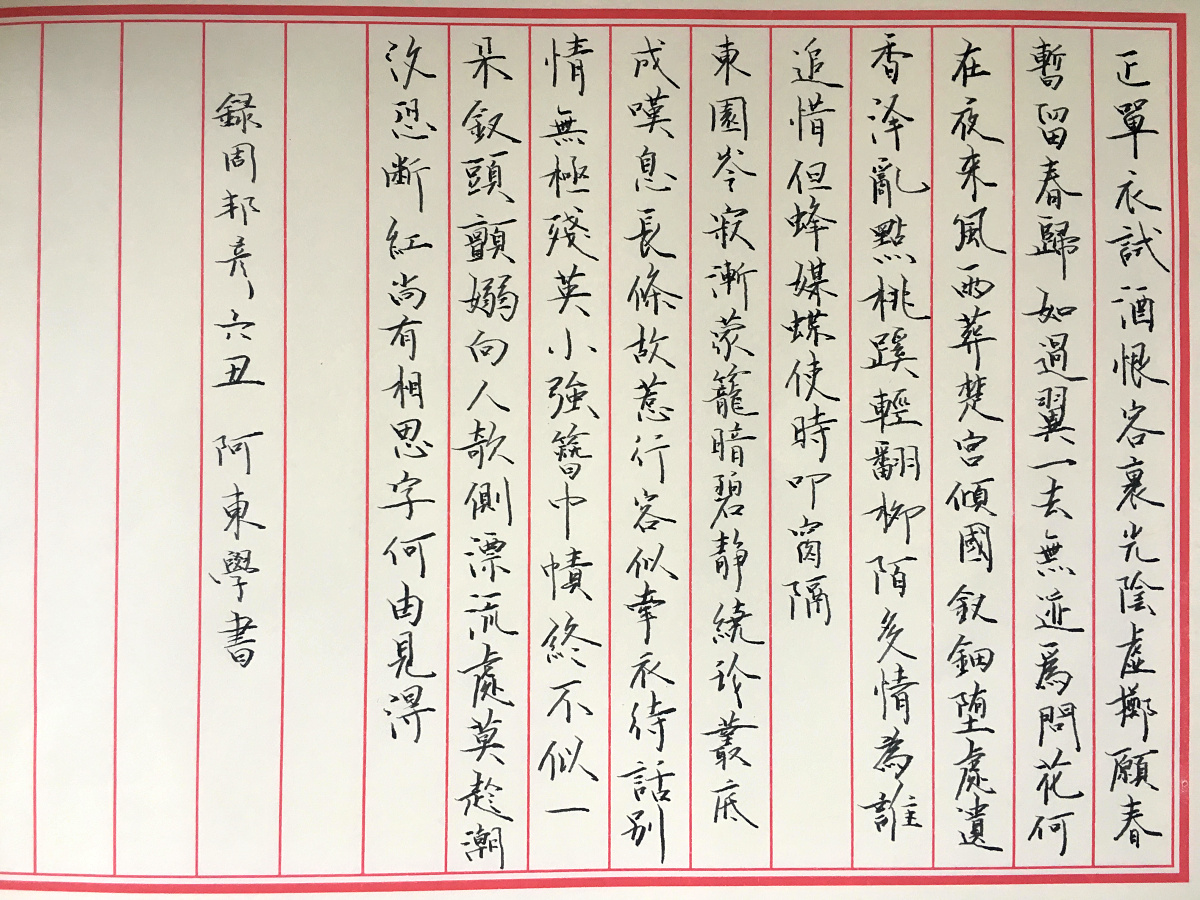 正單衣試酒恨客裏光陰虛擲願春
暫留春歸如過翼一去無迹爲問花何
在夜來風雨葬楚宮傾國釵鈿墮處遺
香澤亂點桃蹊輕翻柳陌多情為誰
追惜但蜂媒蝶使時叩窗隔
東園岑寂漸蒙籠暗碧靜繞珍叢底
成嘆息長條故惹行客似牽衣待話別
情無極殘英小強簪巾幘終不似一
朵釵頭顫嫋向人欹側漂流處莫趁潮
汐恐斷紅尚有相思字何由見得
録周邦彥六丑 阿東學書